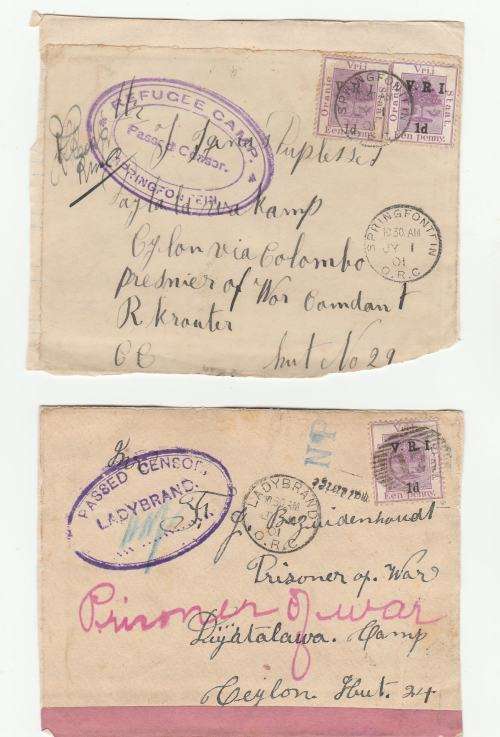 REFUGEE CAMP
Passed Censor.
SPRINGFONTEIN
Oranje Vrij Staat.
V.R.I.
1d
Een penny.
Oranje Vrij Staat.
V.R.I.
1d
Een penny.
SPRINGFONTEIN
10.30 AM
JY 1
01
O.R.C
of Janas Duplessed
kamp
Cylon via Colombo
presnier of Wor Comdant
R krouter
CC hut No 29
PASSED CENSOR,
LADYBRAND.
LADYBRAND
01
O.R.C
NP
Vrij
V.R.I.
1d
Een penny.
J. Bezuidenhoudt
Prisoner of War
Prisoner of war
Diyatalawa. Camp
Ceylon Hut. 24